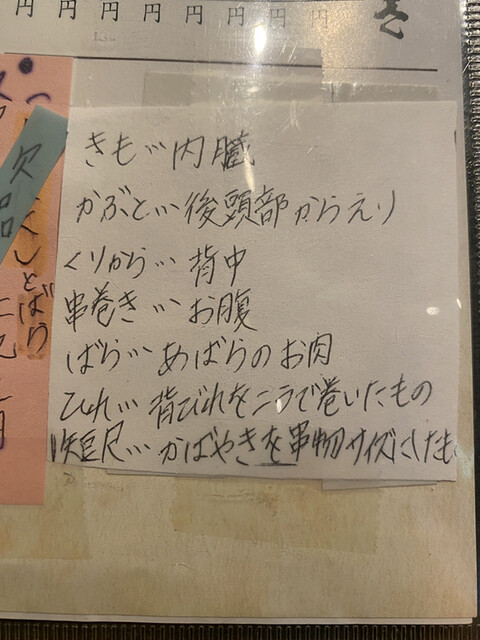 円 円 円 円 円 円 円 円
きも…内臓
かぶと…後頭部からえり
くりから…背中
串巻き…お腹
ばら…あばらのお肉
ひれ…背びれをこうで巻いたもの
短尺…かばやきを串物サイズにしたも
欠品
くしとばら